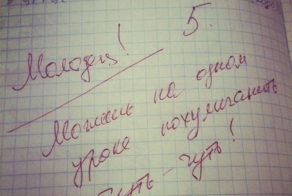 Молодец! 5.
Можешь на одном
уроке похулиганить
чуть-чуть!